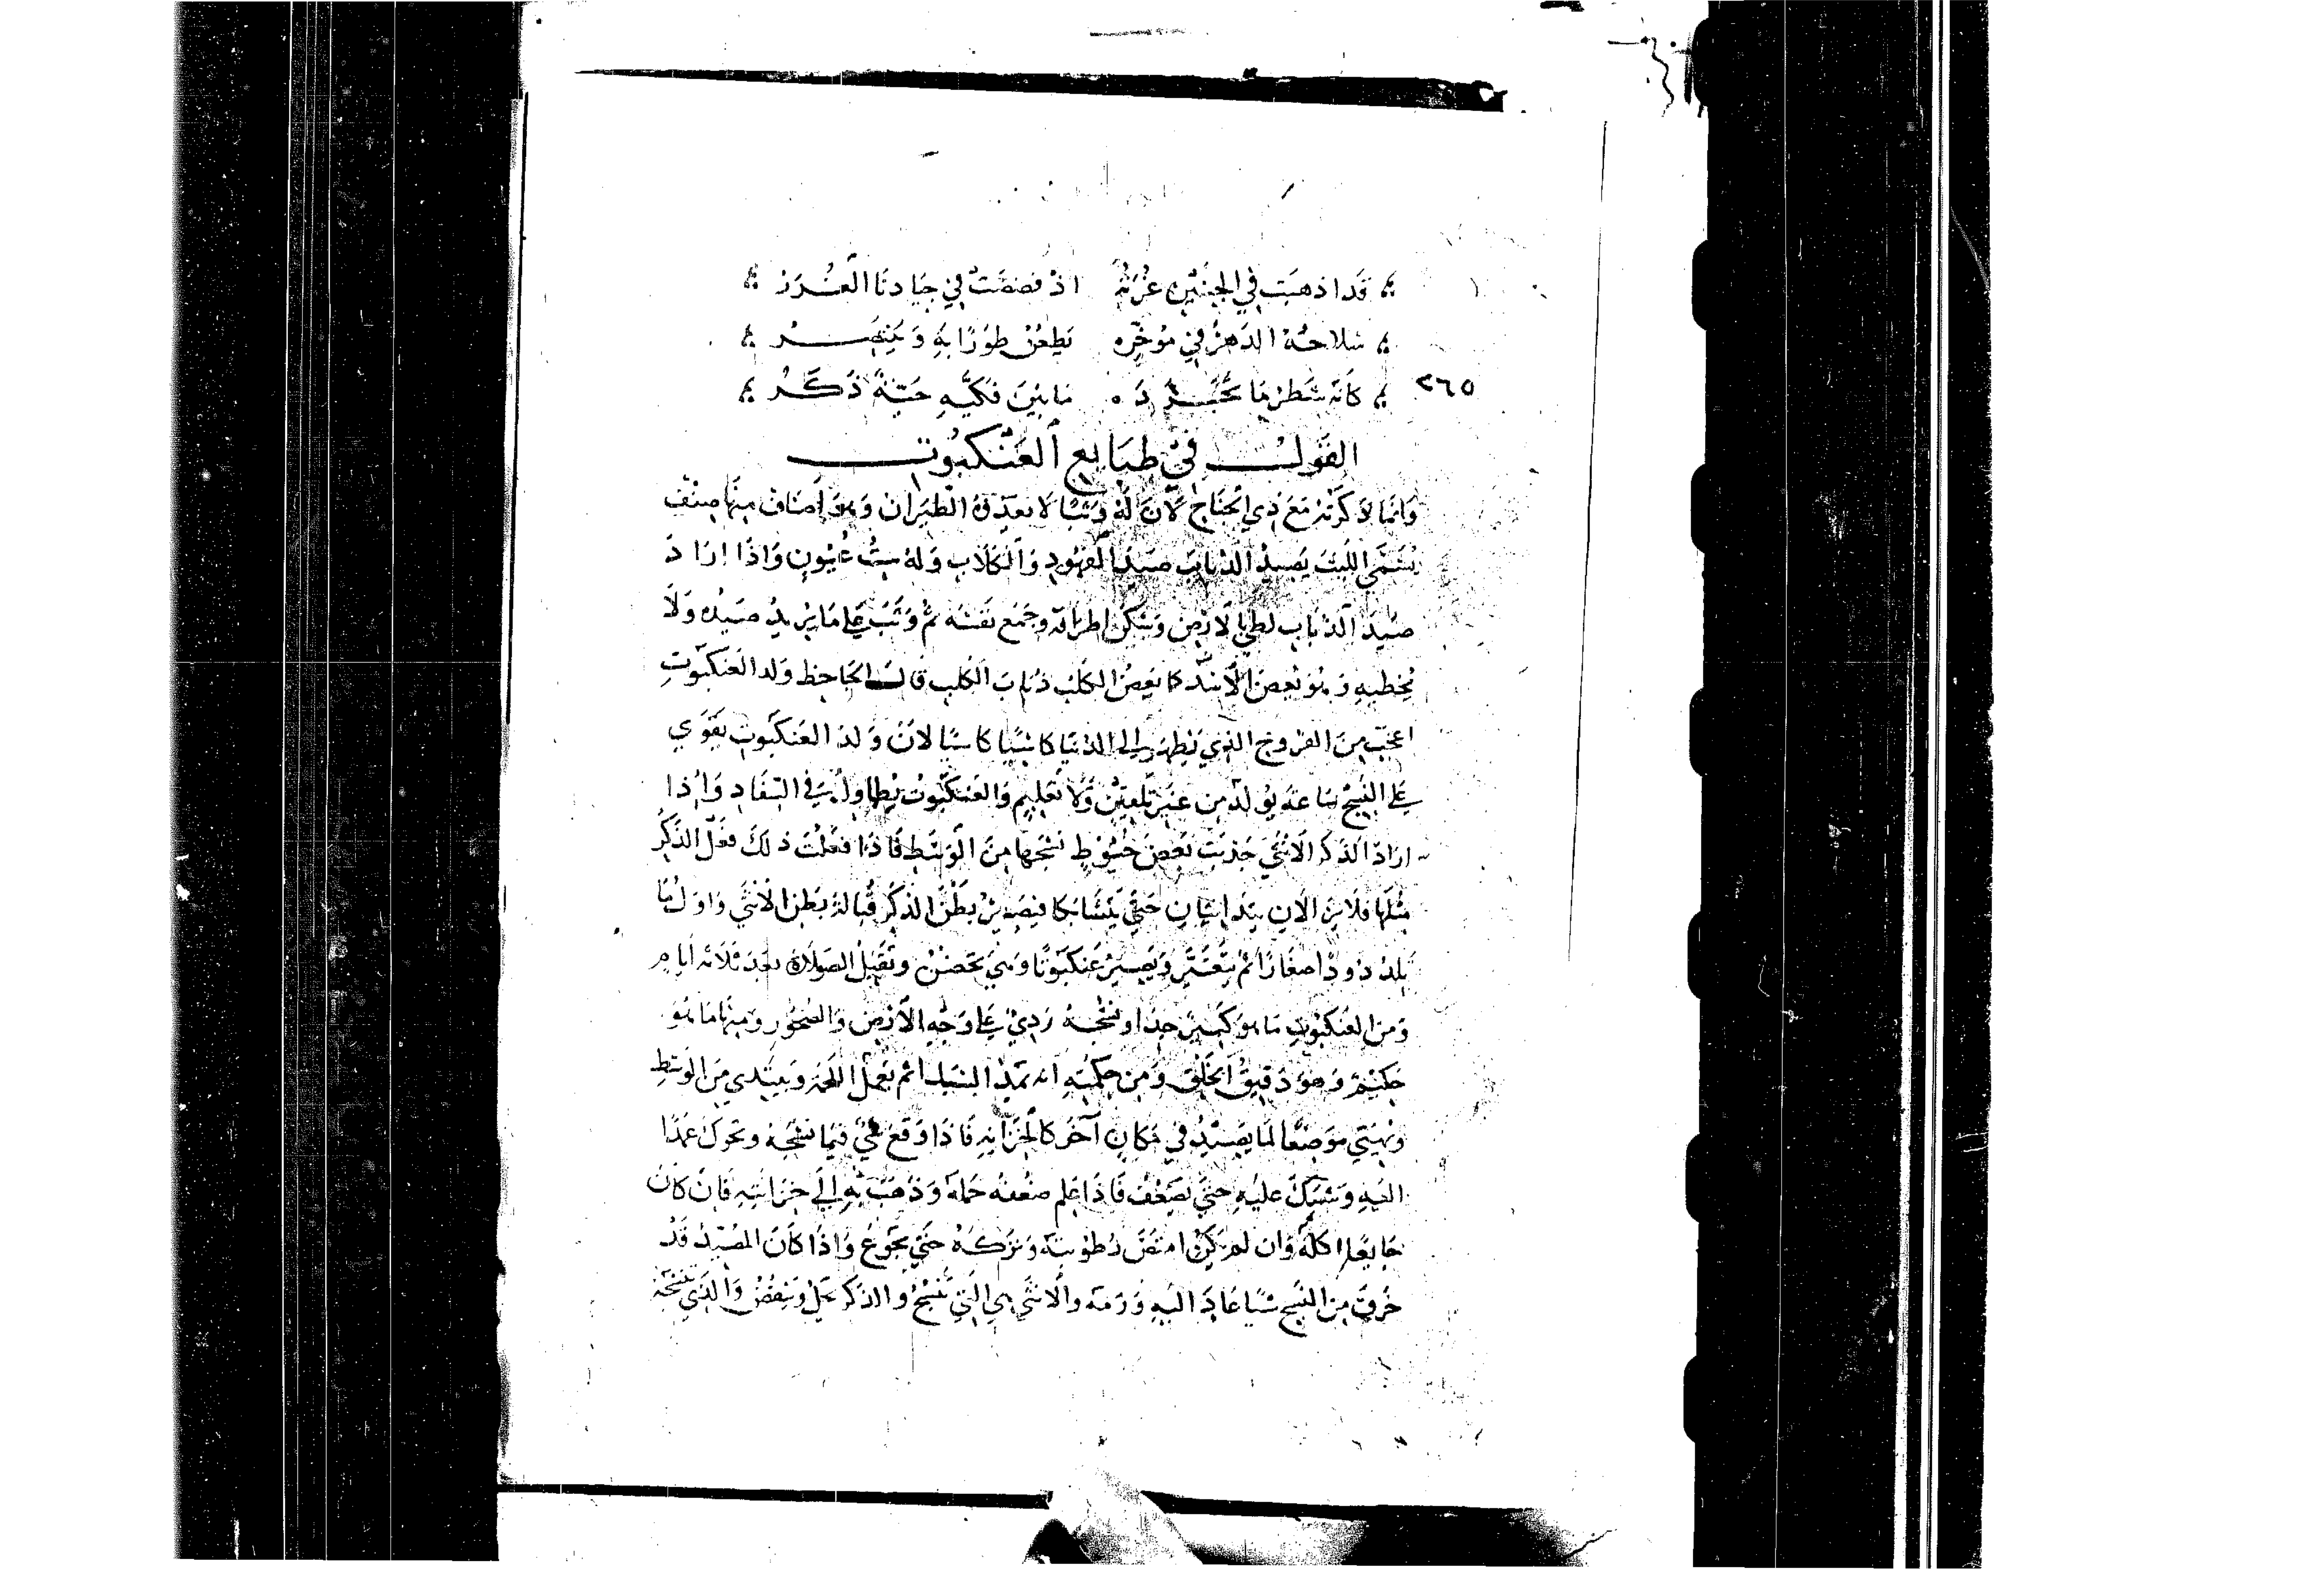 قد اذهبت في الجبين غرته اذ فضضت في جيادنا الغرر
سلاحه الدهر في مؤخره يطعن طورا به وينتصر
٢٦٥
كانه شطر ما تجرد ه ما بين فكيه حية ذكر
القول في طبايع العنكبوت
وانما ذكرته مع ذي الجناح لان له وثبا لا بعد فى الطيران وهو اصناف منها صنف
يسمى الليث يصيد الذباب صيد الفهود والكلاب وله ست عيون واذا اراد
صيد الذباب لطي بالارض وسكن اطرافه وجمع نفسه ثم وثب على ما يريد صيده ولا
يخطيه وهو بعض الاسد كما بعض الكلب ذباب الكلب قال الجاحظ ولد العنكبوت
اعجب من الفروج الذي يظهر الى الدنيا كاسيا كاسيا لان ولد العنكبوت يقوي
على النسج ساعة يولد من غير تلقين ولا تعليم والعنكبوت يطاول في السفاد واذا
اراد الذكر الانثى جذبت بعض خيوط نسجها من الوسط فاذا فعلت ذلك فعل الذكر
مثلها فلا يزالان يتدانيان حتى يتشابكا فيصير بطن الذكر قبالة بطن الانثى واول ما
يلد دودا صغارا ثم يتغير ويصير عنكبوتا وهي تحضن وتقبل الصولاة بعد ثلاثة ايام
ومن العنكبوت ما هو كبير جدا ونسجه ردي على وجه الارض والصخور ومنها ما هو
حكيم وهو دقيق الخلق ومن حكمته انه يمد السدا ثم يعمل اللحمة ويبتدي من الوسط
ويهيئ موضعا لما يصيده في مكان آخر كالخزانة فاذا وقع شي فيما نسجه وتحرك عمدا
اليه وشبك عليه حتى يضعف فاذا علم ضعفه حمله وذهب به الى خزانته فان كان
جايعا اكله وان لم يكن امتص رطوبته وتركه حتى يجوع واذا كان المصيد قد
خرق من النسج شيا عاد اليه ورمه والانثى هي التي تنسج والذكر يحل وينقض والذي تنسجه